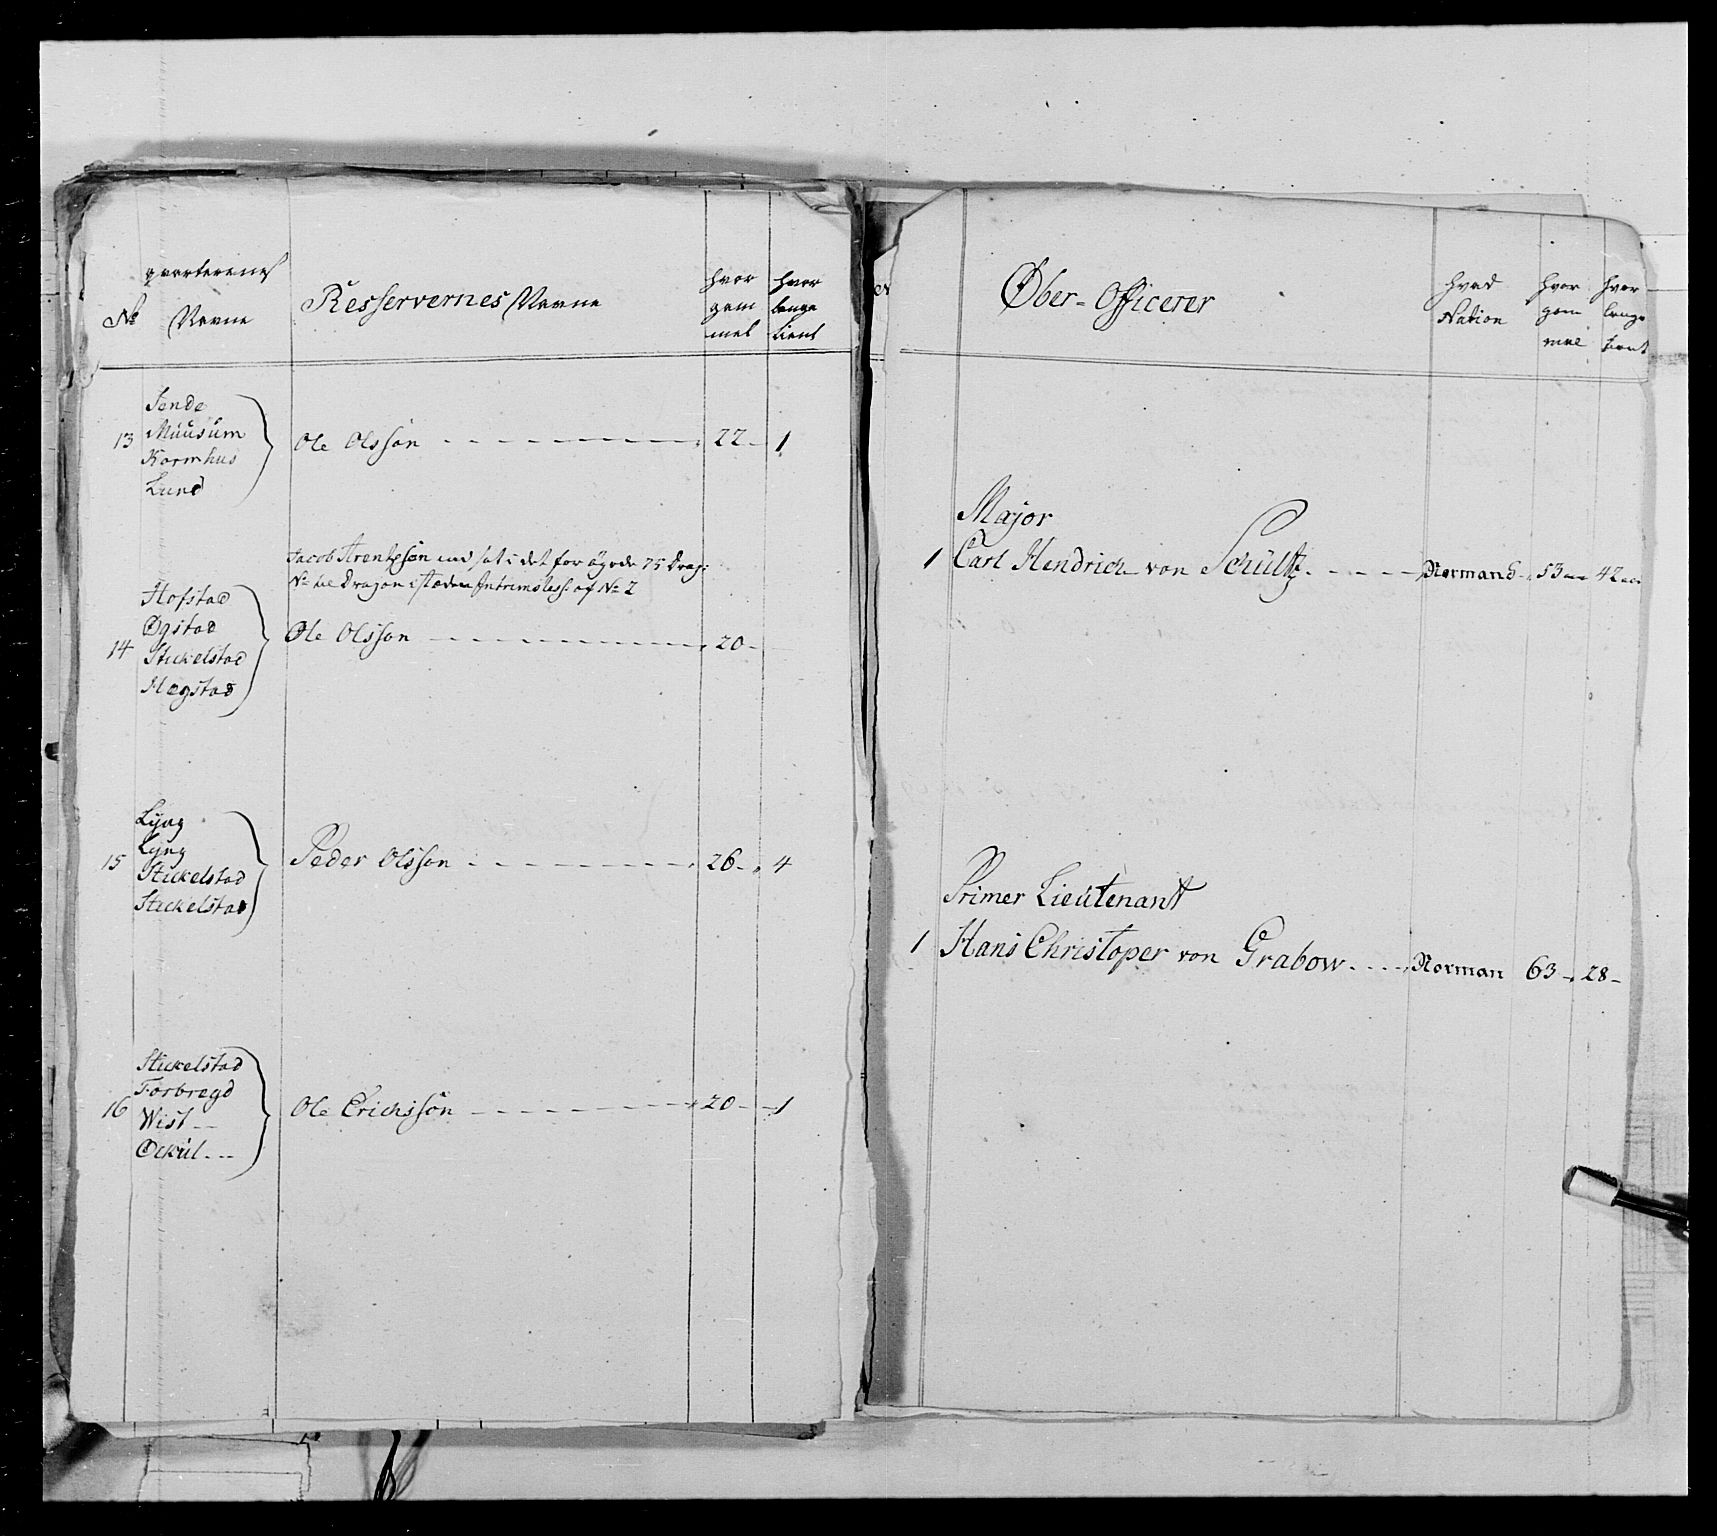 No
qvarterenes
Navne
Resservernes Navne
hvor
gam
mel
hvor
lenge
tient
13
Sende
Müüsum
Kornhus
Lund
Ole Olssön 22 1
Jacob Arentzsön
No til Dragon i stæden Intrimsless: af No 2
14
Hofstad
Øgstad
Stickelstad
Hegstad
Ole Olsson 20
15
Lÿng
Lÿng
Stickelstad
Stickelstad
Peder Olsson 26 4
16
Stickelstad
Forbregd
Wist
Ockül
Ole Erichssön 20 1
Øber-Officerer
hvad
Nation
hvor
gam
mel
hvor
lenge
tient
Major
1 Carl Hendrich von Schültz Normand 53 42
Primer Lieütenant
1 Hans Christoper von Grabow Norman 63 28